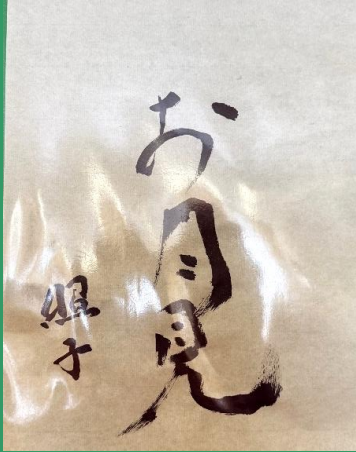 お月見
照子